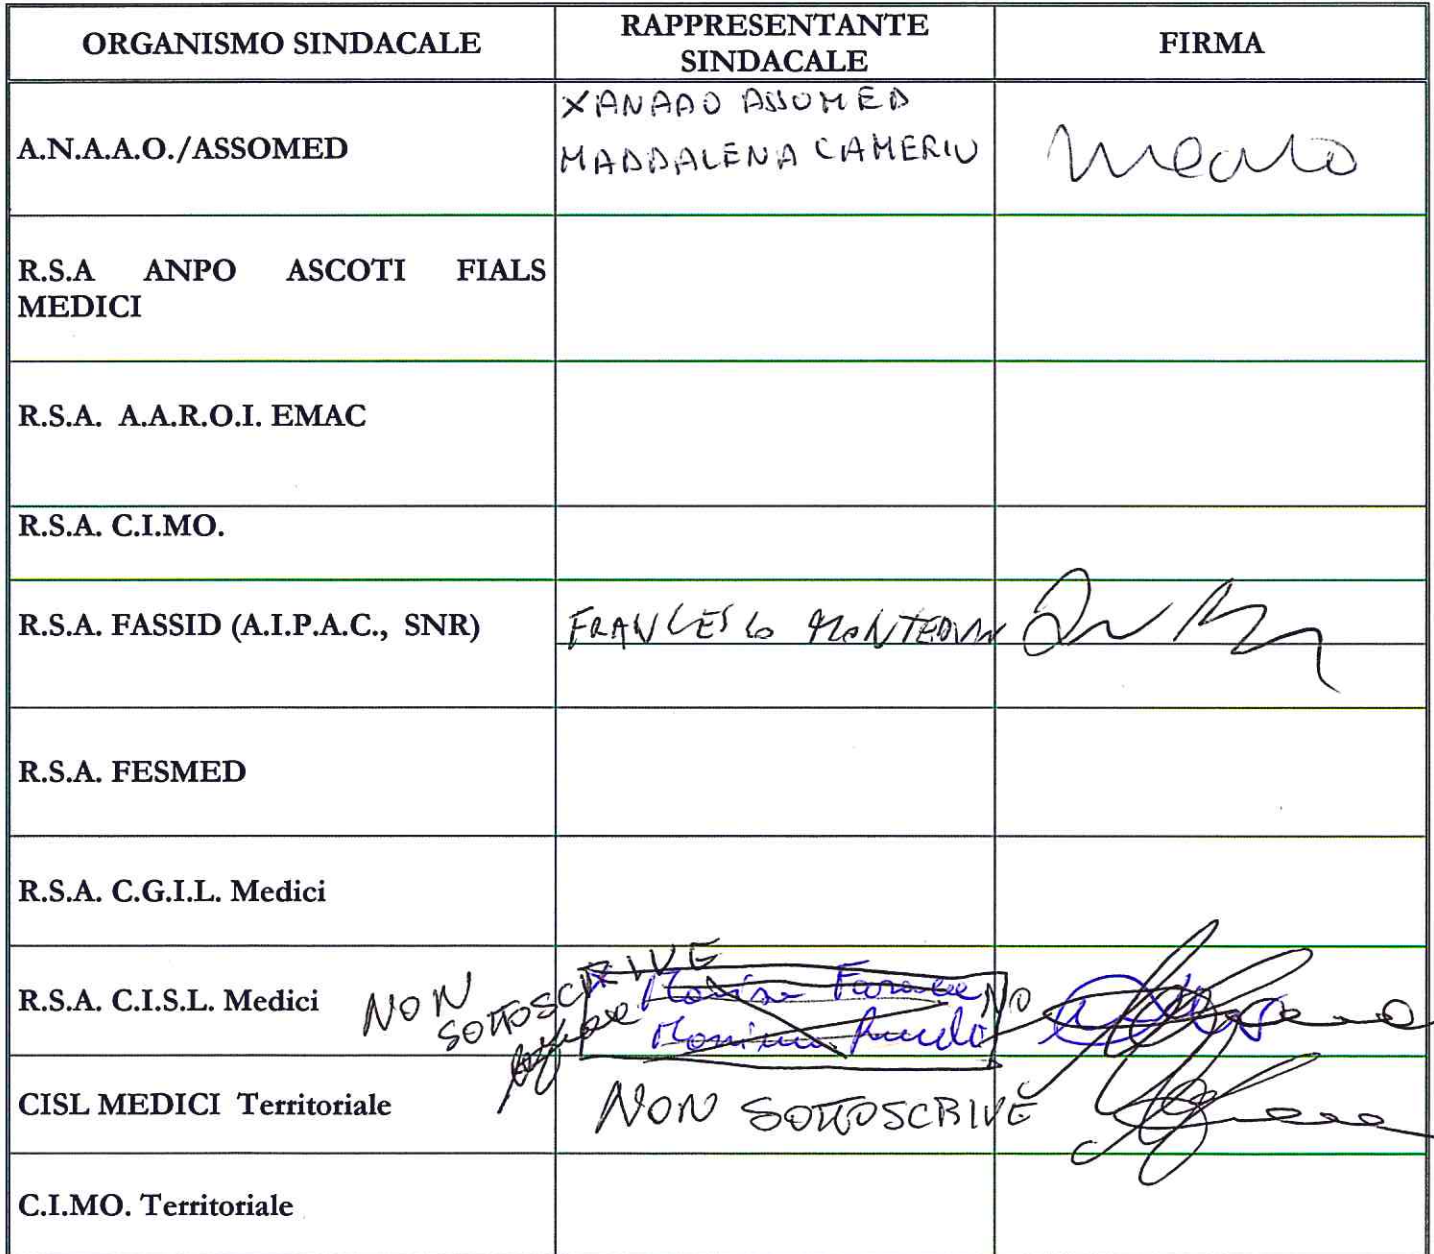 ORGANISMO SINDACALE
RAPPRESENTANTE
SINDACALE
FIRMA
A.N.A.A.O./ASSOMED
XANAAO ASSOMED
MADDALENA CAMERIU
R.S.A ANPO ASCOTI FIALS
MEDICI
R.S.A. A.A.R.O.I. EMAC
R.S.A. C.I.MO.
R.S.A. FASSID (A.I.P.A.C., SNR)
FRANCESCO
R.S.A. FESMED
R.S.A. C.G.I.L. Medici
R.S.A. C.I.S.L. Medici
NON
SOTTOSCRIVE
NO
CISL MEDICI Territoriale
NON SOTTOSCRIVE
C.I.MO. Territoriale